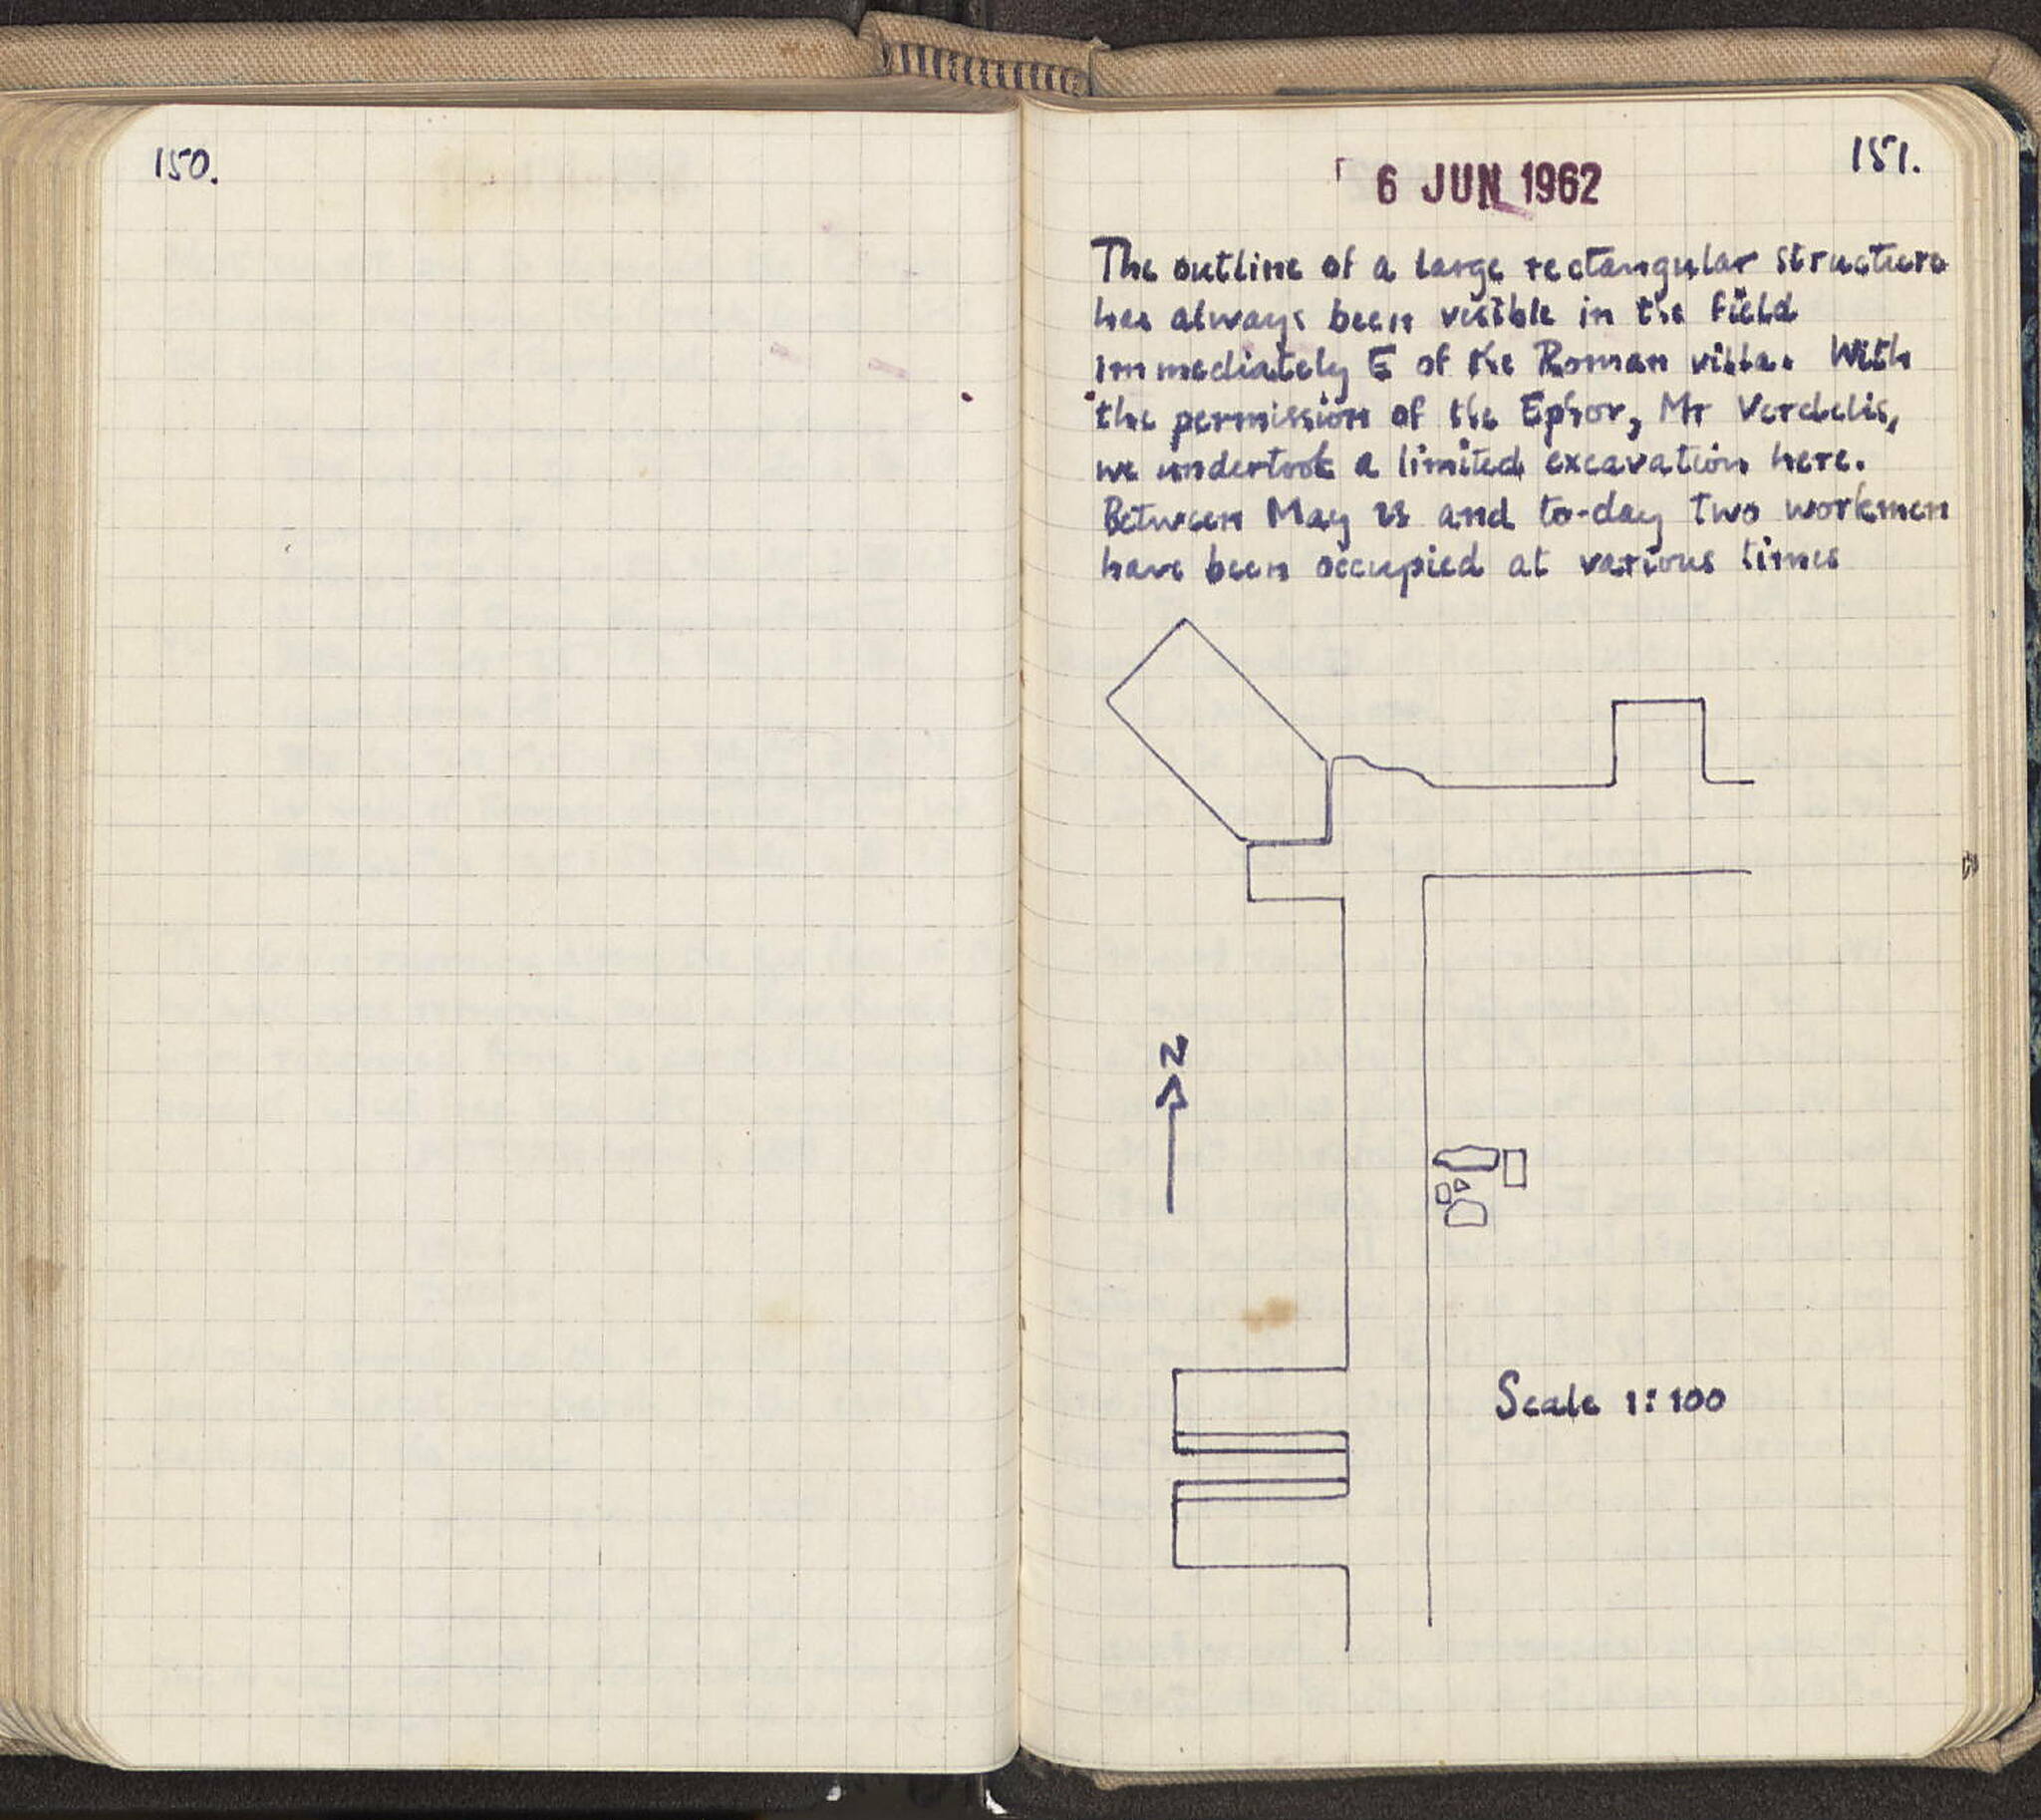 150.
151.
6 JUN 1962
The outline of a large rectangular structure
has always been visible in the field
immediately E of the Roman villa. With
the permission of the Ephor, Mr Verdelis,
we undertook a limited excavation here.
Between May and to-day two workmen
have been occupied at various times
N
Scale 1:100